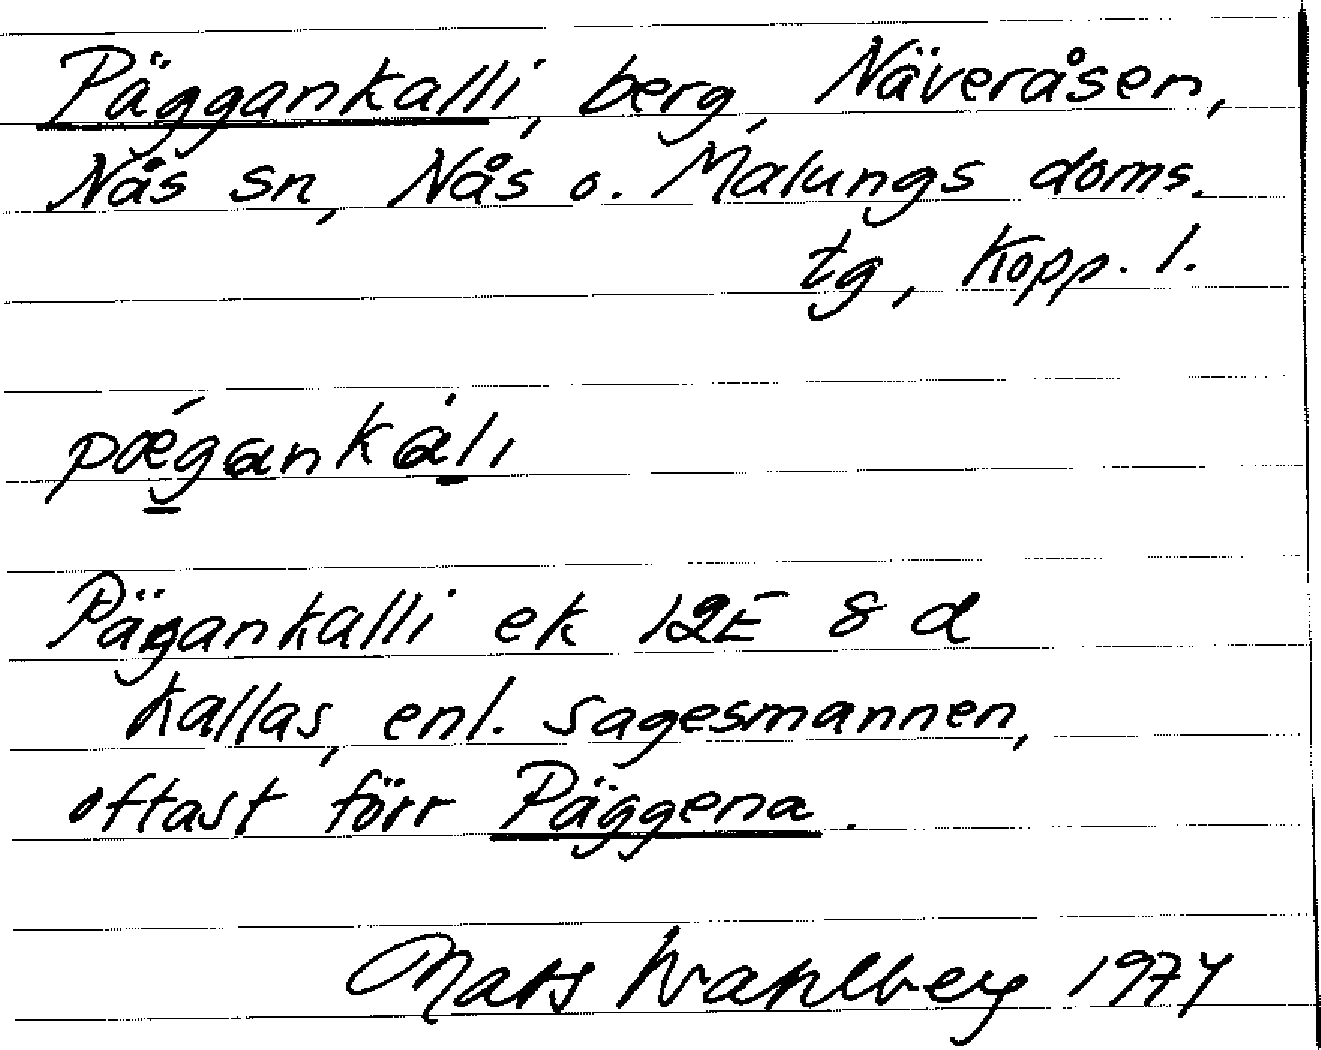 Päggankalli, berg, Näveråsen,
Nås sn, Nås o. Malungs doms.
tg, Kopp. l.
pǽgankálı
Pägankalli ek 12E 8 d
kallas, enl. sagesmannen,
oftast förr Päggena.
Mats Wahlberg 1974